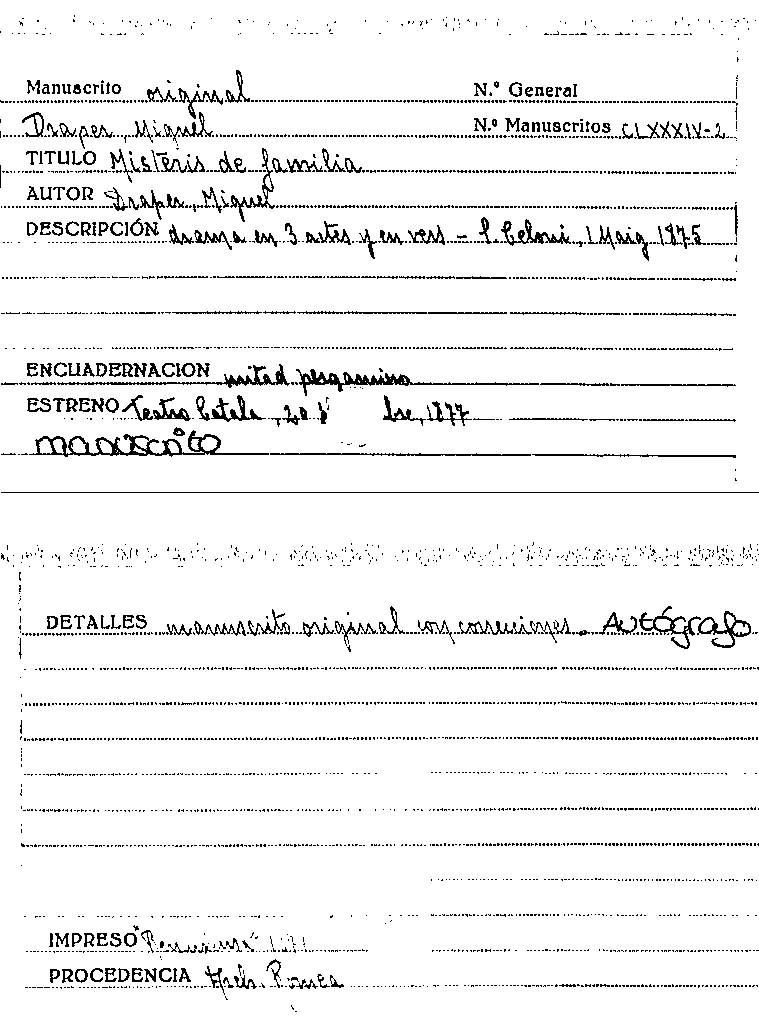 Manuscrito original N.º General
Draper, Miquel N.º Manuscritos CLXXXIV-2
TITULO Misteris de familia
AUTOR Draper, Miquel
DESCRIPCIÓN drama en 3 actes y en vers - S. Celoni, 1 Maig 1875
ENCUADERNACION mitad pergamino
ESTRENO Teatro Catala, 20 bre, 1877
manuscrito
DETALLES manuscrito original con correcciones. Autógrafo
IMPRESO
PROCEDENCIA